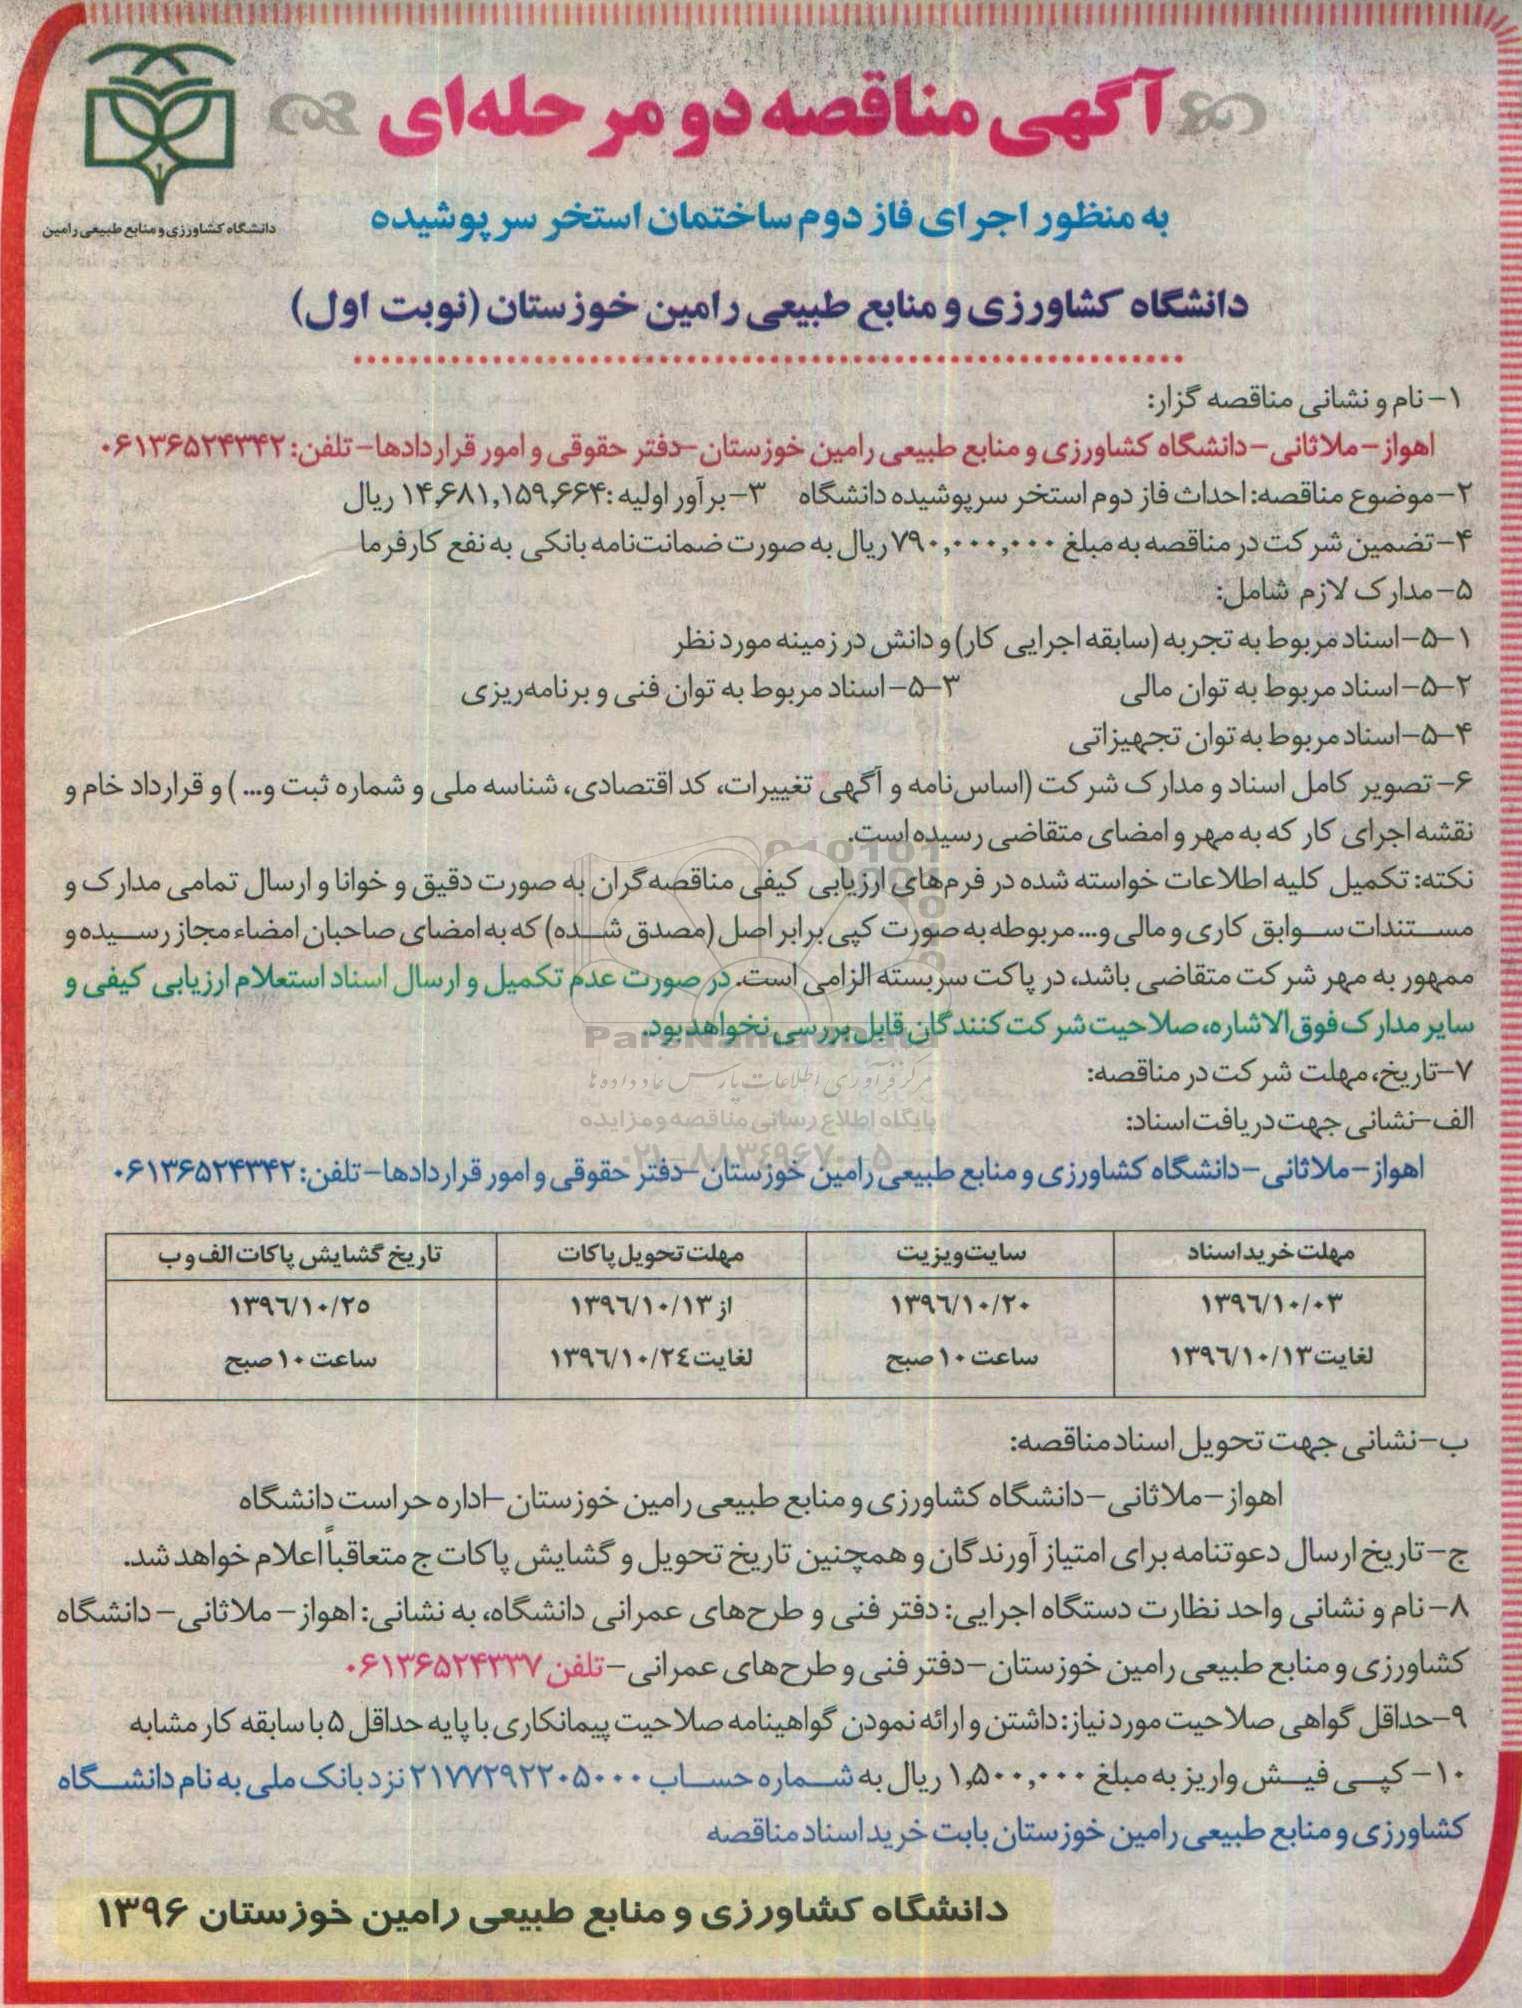 آگهی مناقصه دو مرحله‌ای
دانشگاه کشاورزی و منابع طبیعی رامین
به منظور اجرای فاز دوم ساختمان استخر سرپوشیده
دانشگاه کشاورزی و منابع طبیعی رامین خوزستان (نوبت اول)
۱- نام و نشانی مناقصه گزار:
اهواز - ملاثانی - دانشگاه کشاورزی و منابع طبیعی رامین خوزستان - دفتر حقوقی و امور قراردادها - تلفن: ۰۶۱۳۶۵۲۴۳۴۲
۲- موضوع مناقصه: احداث فاز دوم استخر سرپوشیده دانشگاه ۳- برآور اولیه: ۱۴,۶۸۱,۱۵۹,۶۶۴ ریال
۴- تضمین شرکت در مناقصه به مبلغ ۷۹۰,۰۰۰,۰۰۰ ریال به صورت ضمانت‌نامه بانکی به نفع کارفرما
۵- مدارک لازم شامل:
۵-۱- اسناد مربوط به تجربه (سابقه اجرایی کار) و دانش در زمینه مورد نظر
۵-۲- اسناد مربوط به توان مالی ۵-۳- اسناد مربوط به توان فنی و برنامه‌ریزی
۵-۴- اسناد مربوط به توان تجهیزاتی
۶- تصویر کامل اسناد و مدارک شرکت (اساس‌نامه و آگهی تغییرات، کد اقتصادی، شناسه ملی و شماره ثبت و...) و قرارداد خام و
نقشه اجرای کار که به مهر و امضای متقاضی رسیده است.
نکته: تکمیل کلیه اطلاعات خواسته شده در فرم‌های ارزیابی کیفی مناقصه‌گران به صورت دقیق و خوانا و ارسال تمامی مدارک و
مستندات سوابق کاری و مالی و... مربوطه به صورت کپی برابر اصل (مصدق شده) که به امضای صاحبان امضاء مجاز رسیده و
ممهور به مهر شرکت متقاضی باشد، در پاکت سربسته الزامی است. در صورت عدم تکمیل و ارسال اسناد استعلام ارزیابی کیفی و
سایر مدارک فوق‌الاشاره، صلاحیت شرکت کنندگان قابل بررسی نخواهد بود.
ParsNamadData
مرکز فرآوری اطلاعات پارس نماد داده ها
۷- تاریخ، مهلت شرکت در مناقصه:
پایگاه اطلاع رسانی مناقصه و مزایده
الف- نشانی جهت دریافت اسناد:
۰۲۱-۸۸۳۴۹۶۷۰-۵
اهواز - ملاثانی - دانشگاه کشاورزی و منابع طبیعی رامین خوزستان - دفتر حقوقی و امور قراردادها - تلفن: ۰۶۱۳۶۵۲۴۳۴۲
مهلت خرید اسناد سایت ویزیت مهلت تحویل پاکات تاریخ گشایش پاکات الف و ب
۱۳۹۶/۱۰/۰۳ ۱۳۹۶/۱۰/۲۰ از ۱۳۹۶/۱۰/۱۳ ۱۳۹۶/۱۰/۲۵
لغایت ۱۳۹۶/۱۰/۱۳ ساعت ۱۰ صبح لغایت ۱۳۹۶/۱۰/۲۴ ساعت ۱۰ صبح
ب- نشانی جهت تحویل اسناد مناقصه:
اهواز - ملاثانی - دانشگاه کشاورزی و منابع طبیعی رامین خوزستان - اداره حراست دانشگاه
ج- تاریخ ارسال دعوتنامه برای امتیاز آورندگان و همچنین تاریخ تحویل و گشایش پاکات ج متعاقباً اعلام خواهد شد.
۸- نام و نشانی واحد نظارت دستگاه اجرایی: دفتر فنی و طرح‌های عمرانی دانشگاه، به نشانی: اهواز - ملاثانی - دانشگاه
کشاورزی و منابع طبیعی رامین خوزستان - دفتر فنی و طرح‌های عمرانی - تلفن ۰۶۱۳۶۵۲۴۳۳۷
۹- حداقل گواهی صلاحیت مورد نیاز: داشتن و ارائه نمودن گواهینامه صلاحیت پیمانکاری با پایه حداقل ۵ با سابقه کار مشابه
۱۰- کپی فیش واریز به مبلغ ۱,۵۰۰,۰۰۰ ریال به شماره حساب ۲۱۷۷۲۹۲۲۰۵۰۰۰ نزد بانک ملی به نام دانشگاه
کشاورزی و منابع طبیعی رامین خوزستان بابت خرید اسناد مناقصه
دانشگاه کشاورزی و منابع طبیعی رامین خوزستان ۱۳۹۶